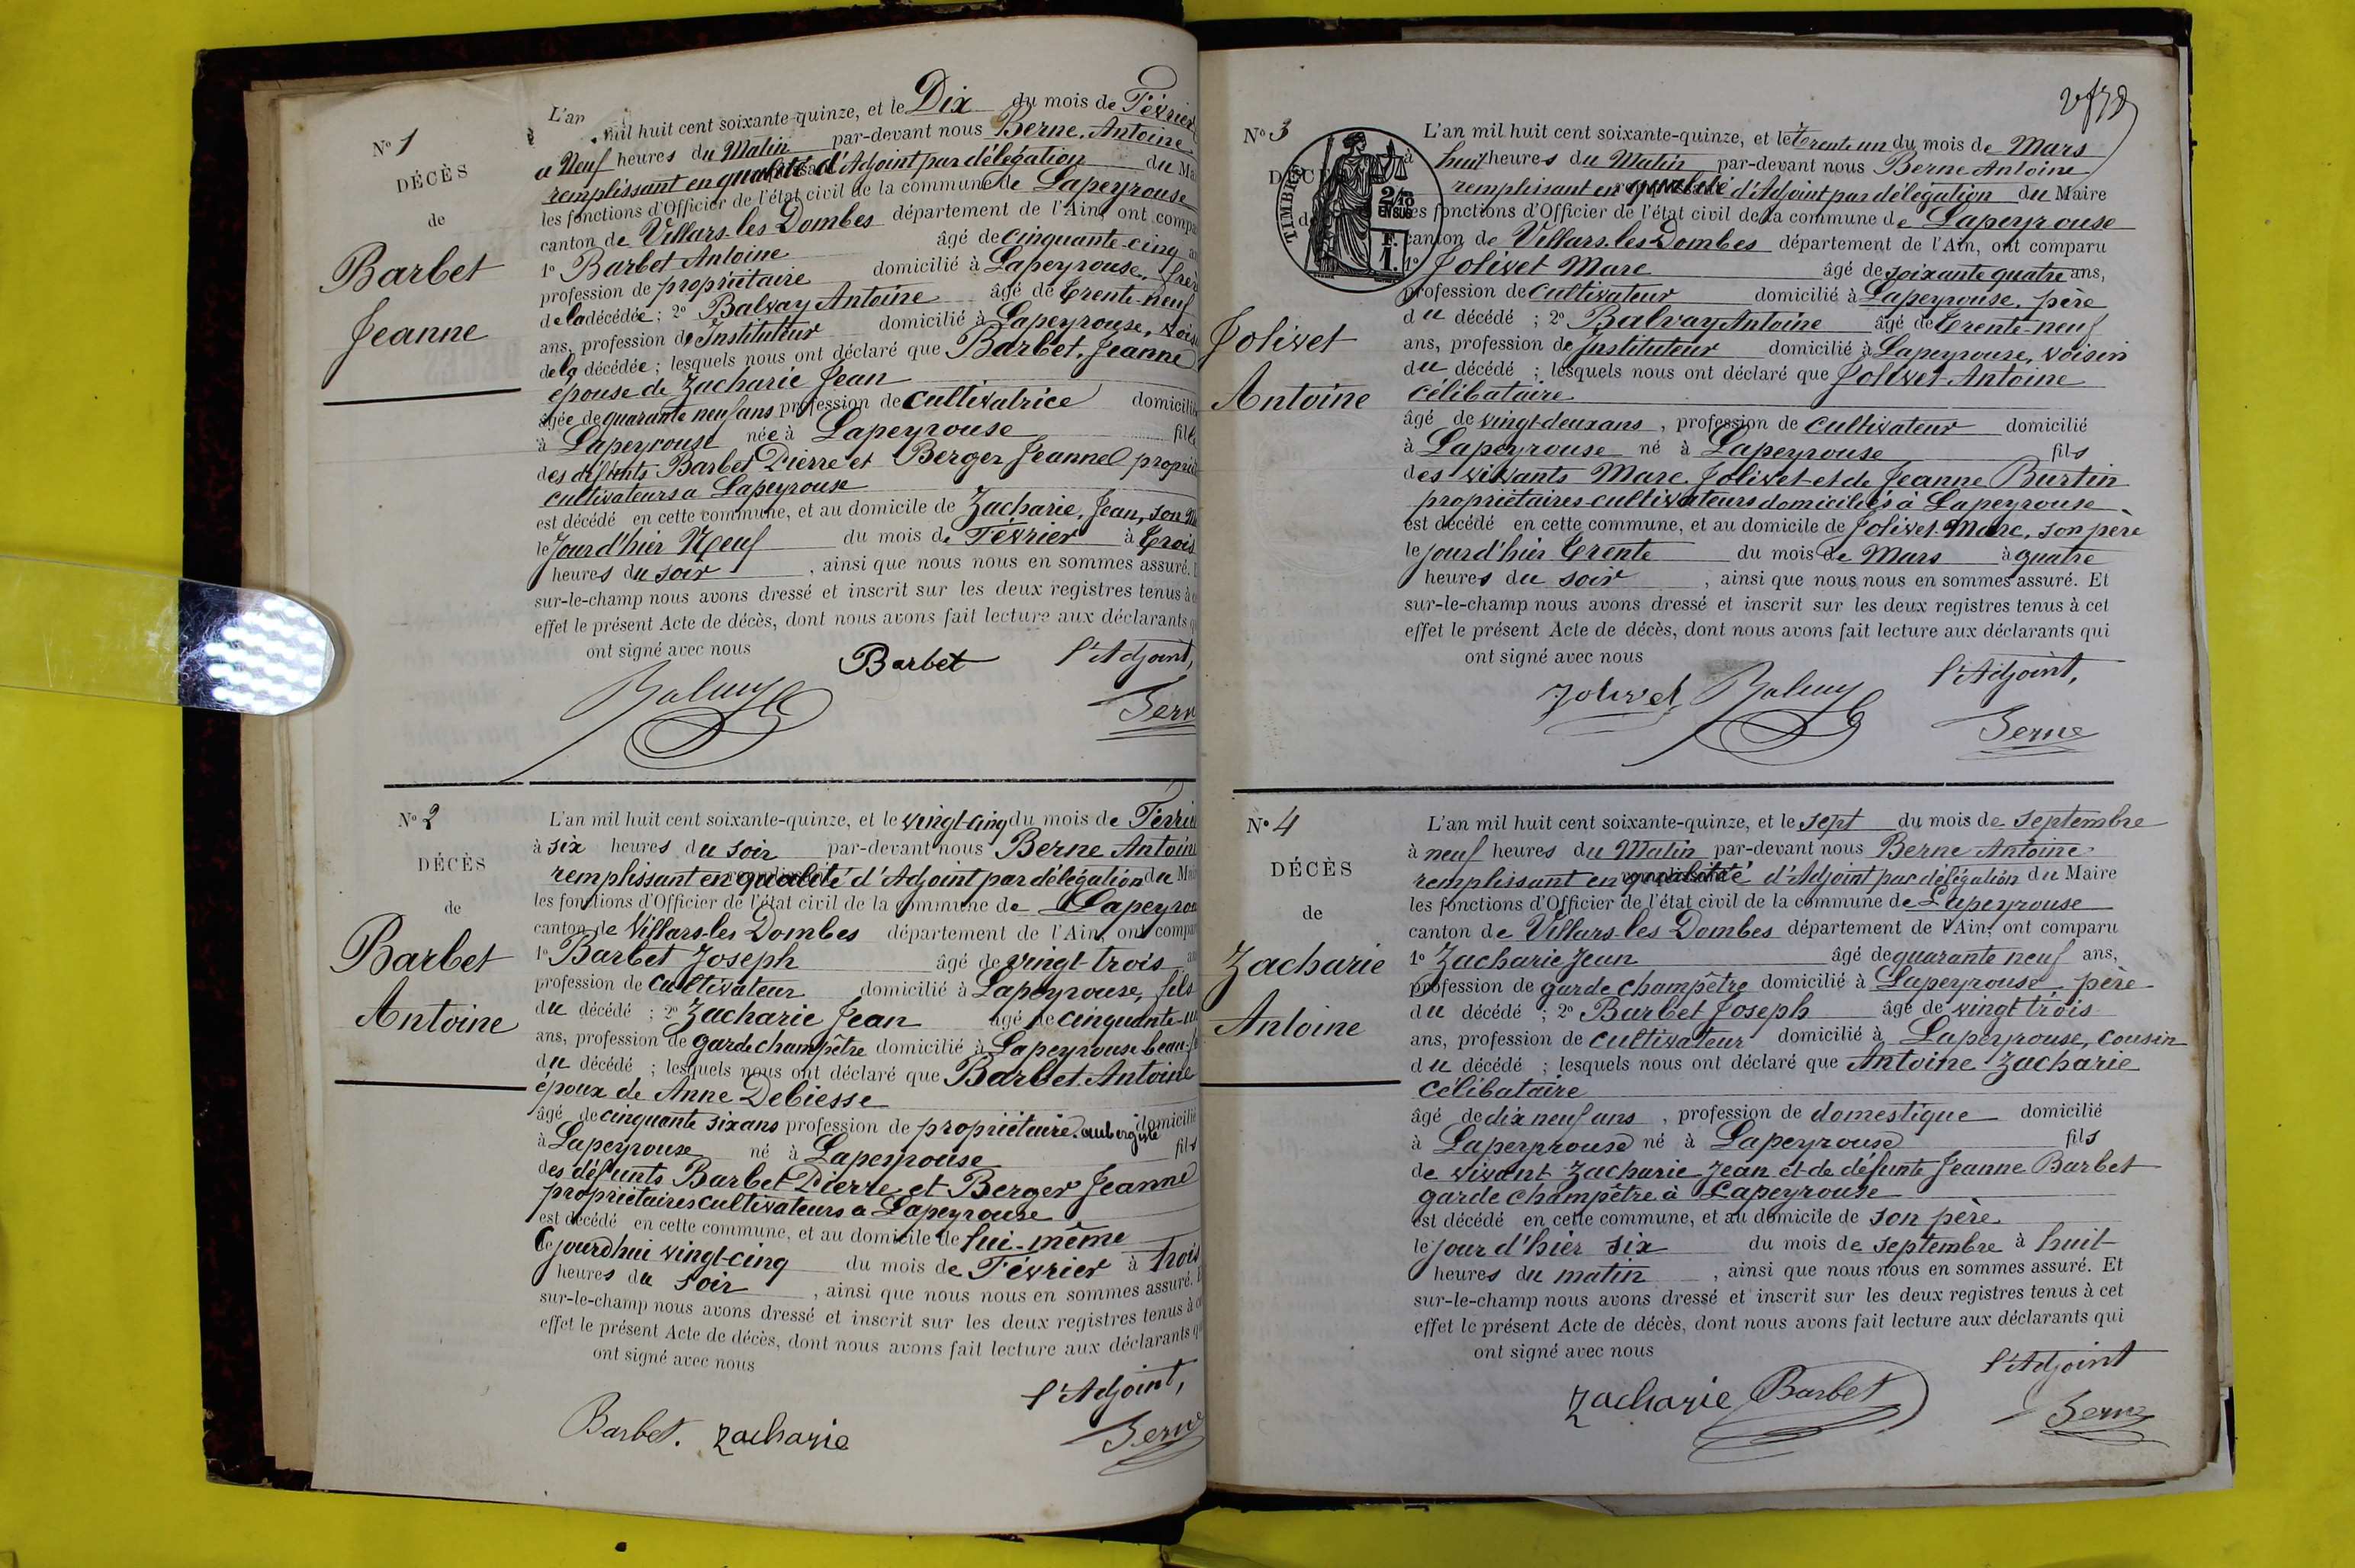 N° 1
DÉCÈS
de
Barbet
Jeanne
L'an mil huit cent soixante-quinze, et le Dix du mois de Février
a Neuf heures du Matin par-devant nous Berne, Antoine
remplissant en qualité d'Adjoint par délégation du Ma
les fonctions d'Officier de l'état civil de la commune de Lapeyrouse
canton de Villars-les Dombes département de l'Ain, ont compa
1° Barbet Antoine âgé de cinquante-cinq an
profession de propriétaire domicilié à Lapeyrouse, frèr
de la décédée ; 2° Balvay Antoine âgé de trente-neuf
ans, profession de Instituteur domicilié à Lapeyrouse, vois
de la décédée ; lesquels nous ont déclaré que Barbet, Jeanne
épouse de Zacharie Jean
âgée de quarante neuf ans profession de cultivatrice domicilié
à Lapeyrouse née à Lapeyrouse fille
des défunts Barbet Pierre et Berger Jeanne propriét
cultivateurs a Lapeyrouse
est décédé en cette commune, et au domicile de Zacharie, Jean, son M
le Jour d'hier Neuf du mois de Février à trois
heures du soir , ainsi que nous nous en sommes assuré.
sur-le-champ nous avons dressé et inscrit sur les deux registres tenus à c
effet le présent Acte de décès, dont nous avons fait lecture aux déclarants q
ont signé avec nous
Barbet l'Adjoint,
Balvay Bern
N° 2
DÉCÈS
de
Barbet
Antoine
L'an mil huit cent soixante-quinze, et le vingt-cinq du mois de Févrie
à six heures du soir par-devant nous Berne Antoine
remplissant en qualité d'Adjoint par délégation du Mai
les fonctions d'Officier de l'état civil de la commune de Lapeyrou
canton de Villars-les Dombes département de l'Ain, ont compar
1° Barbet Joseph âgé de vingt-trois an
profession de Cultivateur domicilié à Lapeyrouse, fils
du décédé ; 2° Zacharie Jean âgé de cinquante-un
ans, profession de garde champêtre domicilié à Lapeyrouse beau-f
du décédé ; lesquels nous ont déclaré que Barbet Antoine
époux de Anne Debiesse
âgé de cinquante six ans profession de propriétaire-aubergiste domicilié
à Lapeyrouse né à Lapeyrouse fils
des défunts Barbet Pierre et Berger Jeanne
propriétaires cultivateurs a Lapeyrouse
est décédé en cette commune, et au domicile de lui-même
Cejourdhui vingt-cinq du mois de Février à trois
heures du soir , ainsi que nous nous en sommes assuré. E
sur-le-champ nous avons dressé et inscrit sur les deux registres tenus à c
effet le présent Acte de décès, dont nous avons fait lecture aux déclarants q
ont signé avec nous
l'Adjoint,
Barbet. Zacharie Berne
N° 3
DÉCÈ
d
Jolivet
Antoine
TIMBRE
2/10 EN SUS
F. 1.
L'an mil huit cent soixante-quinze, et le trente un du mois de Mars
à huit heures du Matin par-devant nous Berne Antoine
remplissant en qualité d'Adjoint par délégation du Maire
les fonctions d'Officier de l'état civil de la commune de Lapeyrouse
canton de Villars-les Dombes département de l'Ain, ont comparu
1° Jolivet Marc âgé de soixante quatre ans,
profession de cultivateur domicilié à Lapeyrouse, père
du décédé ; 2° Balvay Antoine âgé de trente-neuf
ans, profession de Instituteur domicilié à Lapeyrouse, voisin
du décédé ; lesquels nous ont déclaré que Jolivet-Antoine
célibataire
âgé de vingt-deux ans , profession de cultivateur domicilié
à Lapeyrouse né à Lapeyrouse fils
des vivants Marc Jolivet et de Jeanne Burtin
propriétaires-cultivateurs domiciliés à Lapeyrouse
est décédé en cette commune, et au domicile de Jolivet-Marc, son père
le jour d'hier trente du mois de Mars à quatre
heures du soir , ainsi que nous nous en sommes assuré. Et
sur-le-champ nous avons dressé et inscrit sur les deux registres tenus à cet
effet le présent Acte de décès, dont nous avons fait lecture aux déclarants qui
ont signé avec nous
l'Adjoint,
Jolivet Balvay Berne
N° 4
DÉCÈS
de
Zacharie
Antoine
L'an mil huit cent soixante-quinze, et le sept du mois de septembre
à neuf heures du Matin par-devant nous Berne Antoine
remplissant en qualité d'Adjoint par délégation du Maire
les fonctions d'Officier de l'état civil de la commune de Lapeyrouse
canton de Villars-les Dombes département de l'Ain, ont comparu
1° Zacharie Jean âgé de quarante neuf ans,
profession de garde champêtre domicilié à Lapeyrouse, père
du décédé ; 2° Barbet Joseph âgé de vingt trois
ans, profession de cultivateur domicilié à Lapeyrouse, cousin
du décédé ; lesquels nous ont déclaré que Antoine Zacharie
célibataire
âgé de dix neuf ans , profession de domestique domicilié
à Lapeyrouse né à Lapeyrouse fils
de vivant Zacharie Jean et de défunte Jeanne Barbet
garde champêtre à Lapeyrouse
est décédé en cette commune, et au domicile de son père
le jour d'hier six du mois de septembre à huit
heures du matin , ainsi que nous nous en sommes assuré. Et
sur-le-champ nous avons dressé et inscrit sur les deux registres tenus à cet
effet le présent Acte de décès, dont nous avons fait lecture aux déclarants qui
ont signé avec nous
l'Adjoint
Zacharie Barbet Berne